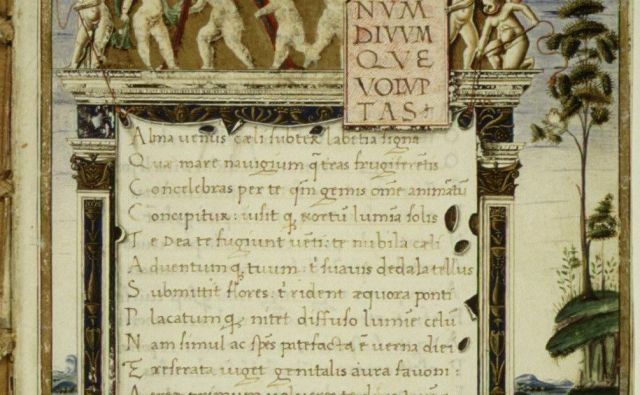 NUM
DIVUM
QUE
VOLUP
TAS
Alma venus cæli subter labētia signa
Quæ mare navigium q̄ tras frugiferētis
Concelebras per te qm̄ genus om̄e animātū
Concipitur: visit q; exortū lumīa solis
Te Dea te fugiunt vēti: te nubila cæli
Adventumq; tuum: t' suavis dedala tellus
Submittit flores: t' rident æquora ponti
Placatumq; nitet diffuso lumīe celū
Nam simul ac spēs patefacta ē verna diei
Et reserata viget genitalis aura favoni: